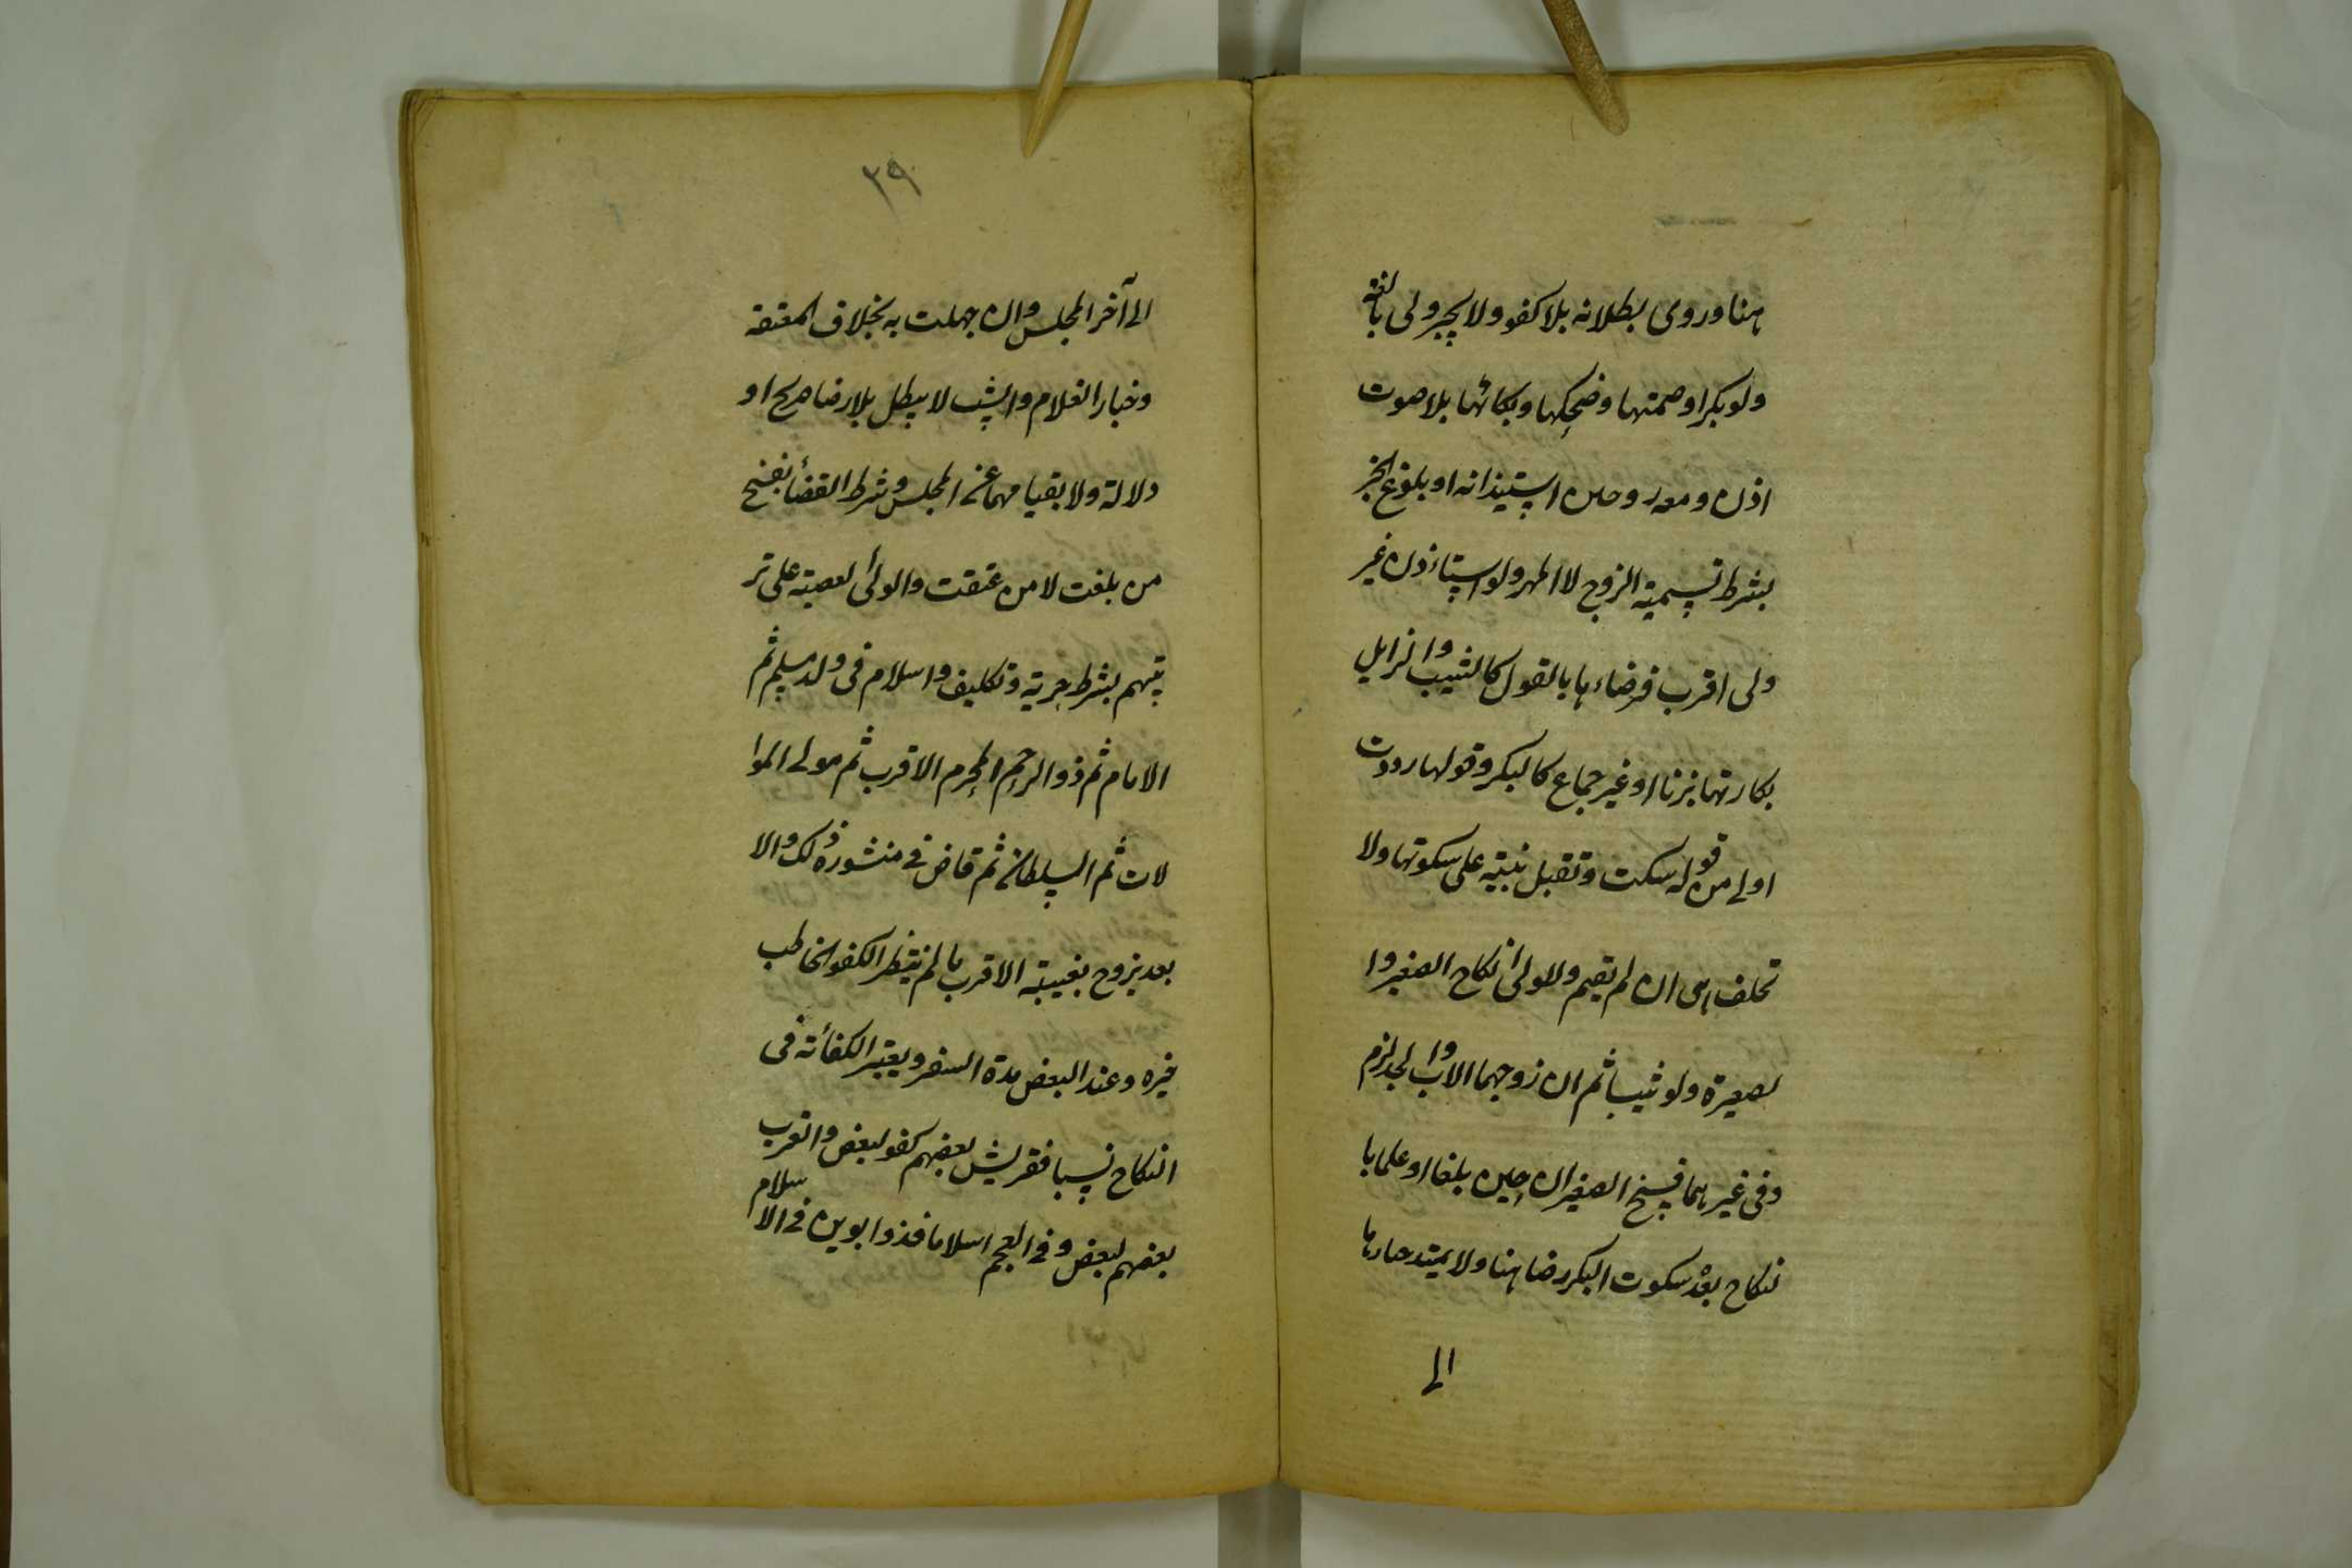 هنا وروى بطلانه بلا كفو ولا يجبر ولى بالغة
ولو بكرا وصمتها وضحكها وبكائها بلا صوت
اذن ومعه رد وحين استيذانه او بلوغ الخبر
بشرط تسمية الزوج لا المهر ولو استاذن غير
ولى اقرب فرضاءها بالقول كالثيب والزايل
بكارتها بزنا او غير جماع كالبكر وقولها رددت
اولى من قوله سكت وتقبل بينته على سكوتها ولا
تحلف هى ان لم يقم وللولى انكاح الصغير وا
لصغيرة ولو ثيبا ثم ان زوجهما الاب والجد لزم
وفى غيرهما فسخ الصغيران حين بلغا او علما با
لنكاح بعد سكوت البكر رضا هنا ولا يمتد خيارها
الى
٢٩
الى آخر المجلس وان جهلت به بخلاف المعتقة
وخيار الغلام والثيب لا يبطل بلا رضا صريح او
دلالة ولا بقيامهما عن المجلس وشرط القضأ بفسخ
من بلغت لا من عتقت والولى العصبة على تر
تيبهم بشرط حرية وتكليف واسلام فى ولد مسلم ثم
الامام ثم ذو الرحم المحرم الاقرب ثم مولى الموا
لات ثم السلطان ثم قاض فى منشوره ذلك والا
بعد يزوج بغيبته الاقرب ما لم ينتظر الكفو الخاطب
خبره وعند البعض مدة السفر ويعتبر الكفائة فى
النكاح نسبا فقريش بعضهم كفو لبعض والعرب
بعضهم لبعض وفى العجم اسلاما فذو ابوين فى الاسلام